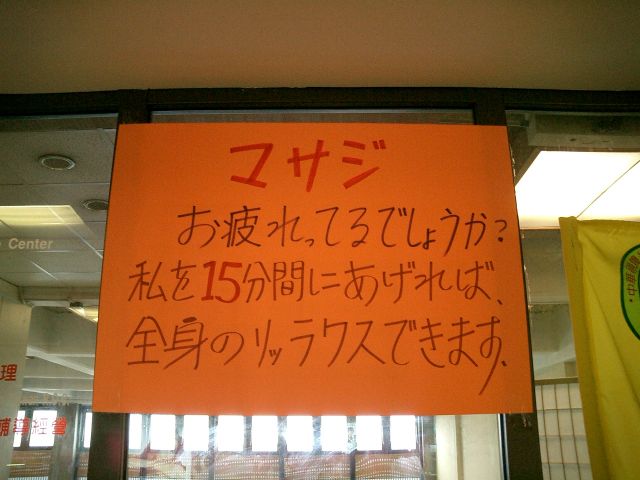 マサジ
お疲れってるでしょうか?
私を15分間にあげれば、
全身のリッラクスできます.
Center
理
輔導經營